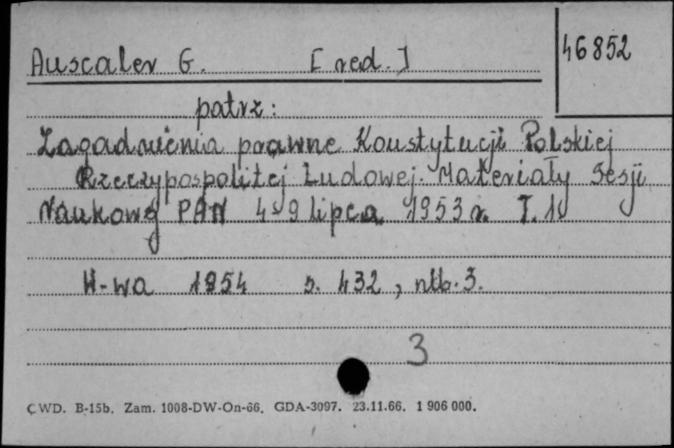 Auscaler G. [red.]
46852
patrz:
Zagadnienia prawne Konstytucji Polskiej
Rzeczypospolitej Ludowej. Materiały Sesji
Naukowej PAN 4-9 lipca 1953 r. T. 1
W-wa 1954 s. 432, nlb. 3.
3
CWD. B-15b. Zam. 1008-DW-On-66. GDA-3097. 23.11.66. 1 906 000.